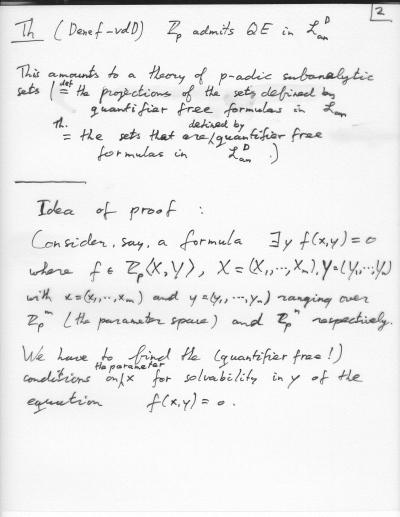 2
Th (Denef-vdD) ℤ_p admits QE in L_an^D
This amounts to a theory of p-adic subanalytic
sets ( def= the projections of the sets defined by
quantifier free formulas in L_an
Th. = the sets that are defined by quantifier free
formulas in L_an^D .)
Idea of proof :
Consider, say, a formula ∃y f(x,y)=0
where f ∈ ℤ_p⟨X,Y⟩, X=(X₁,…,X_m), Y=(Y₁,…,Y_n)
with x=(x₁,…,x_m) and y=(y₁,…,y_n) ranging over
ℤ_p^m (the parameter space) and ℤ_p^n respectively.
We have to find the (quantifier free!)
conditions on the parameter x for solvability in y of the
equation f(x,y)=0.